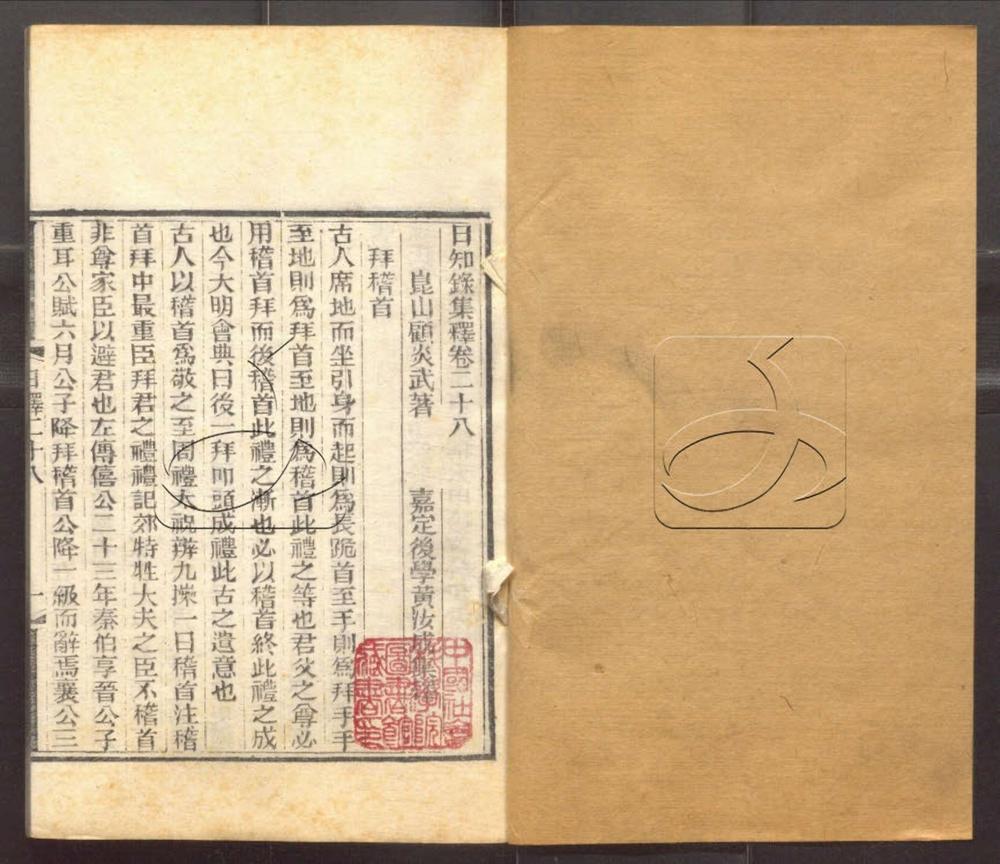 日知錄集釋卷二十八
崑山顧炎武著 嘉定後學黃汝成集釋
拜稽首
古人席地而坐引身而起則爲長跪首至手則爲拜手手
至地則爲拜首至地則爲稽首此禮之等也君父之尊必
用稽首拜而後稽首此禮之漸也必以稽首終此禮之成
也今大明會典曰後一拜叩頭成禮此古之遺意也
古人以稽首爲敬之至周禮大祝辨九𢷎一曰稽首注稽
首拜中最重臣拜君之禮禮記郊特牲大夫之臣不稽首
非尊家臣以避君也左傳僖公二十三年秦伯享晉公子
重耳公賦六月公子降拜稽首公降一級而辭焉襄公三